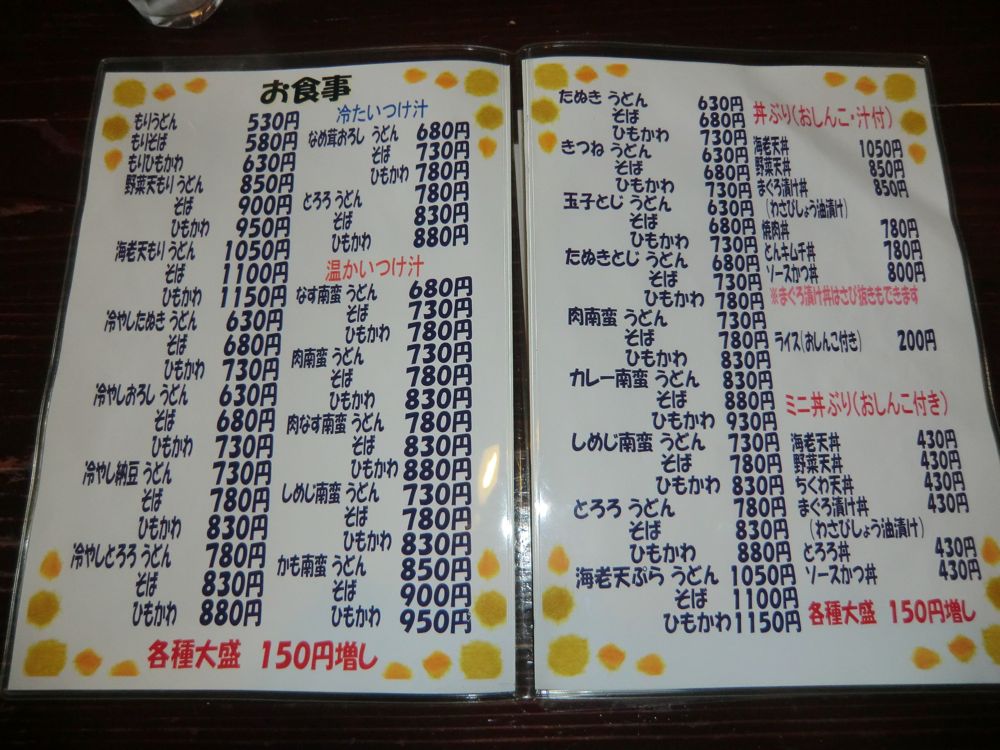 お食事
もりうどん 530円
もりそば 580円
もりひもかわ 630円
野菜天もりうどん 850円
そば 900円
ひもかわ 950円
海老天もりうどん 1050円
そば 1100円
ひもかわ 1150円
冷やしたぬきうどん 630円
そば 680円
ひもかわ 730円
冷やしおろしうどん 630円
そば 680円
ひもかわ 730円
冷やし納豆うどん 730円
そば 780円
ひもかわ 830円
冷やしとろろうどん 780円
そば 830円
ひもかわ 880円
冷たいつけ汁
なめ茸おろしうどん 680円
そば 730円
ひもかわ 780円
とろろうどん 780円
そば 830円
ひもかわ 880円
温かいつけ汁
なす南蛮うどん 680円
そば 730円
ひもかわ 780円
肉南蛮うどん 730円
そば 780円
ひもかわ 830円
肉なす南蛮うどん 780円
そば 830円
ひもかわ 880円
しめじ南蛮うどん 730円
そば 780円
ひもかわ 830円
かも南蛮うどん 850円
そば 900円
ひもかわ 950円
各種大盛 150円増し
たぬきうどん 630円
そば 680円
ひもかわ 730円
きつねうどん 630円
そば 680円
ひもかわ 730円
玉子とじうどん 630円
そば 680円
ひもかわ 730円
たぬきとじうどん 680円
そば 730円
ひもかわ 780円
肉南蛮うどん 730円
そば 780円
ひもかわ 830円
カレー南蛮うどん 830円
そば 880円
ひもかわ 930円
しめじ南蛮うどん 730円
そば 780円
ひもかわ 830円
とろろうどん 780円
そば 830円
ひもかわ 880円
海老天ぷらうどん 1050円
そば 1100円
ひもかわ 1150円
丼ぶり(おしんこ・汁付)
海老天丼 1050円
野菜天丼 850円
まぐろ漬け丼 850円
(わさびしょう油漬け)
焼肉丼 780円
とんキムチ丼 780円
ソースかつ丼 800円
※まぐろ漬け丼はさび抜きもできます
ライス(おしんこ付き) 200円
ミニ丼ぶり(おしんこ付き)
海老天丼 430円
野菜天丼 430円
ちくわ天丼 430円
まぐろ漬け丼 430円
(わさびしょう油漬け)
とろろ丼 430円
ソースかつ丼 430円
各種大盛 150円増し